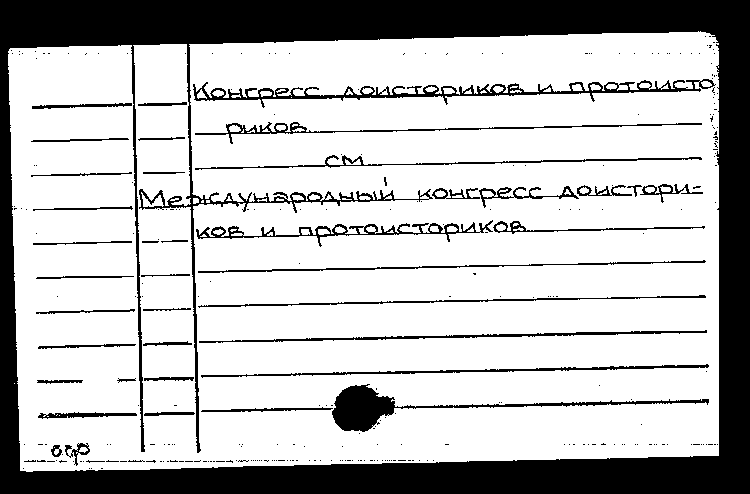 Конгресс доисториков и протоисто
риков
см
Международный конгресс доистори-
ков и протоисториков